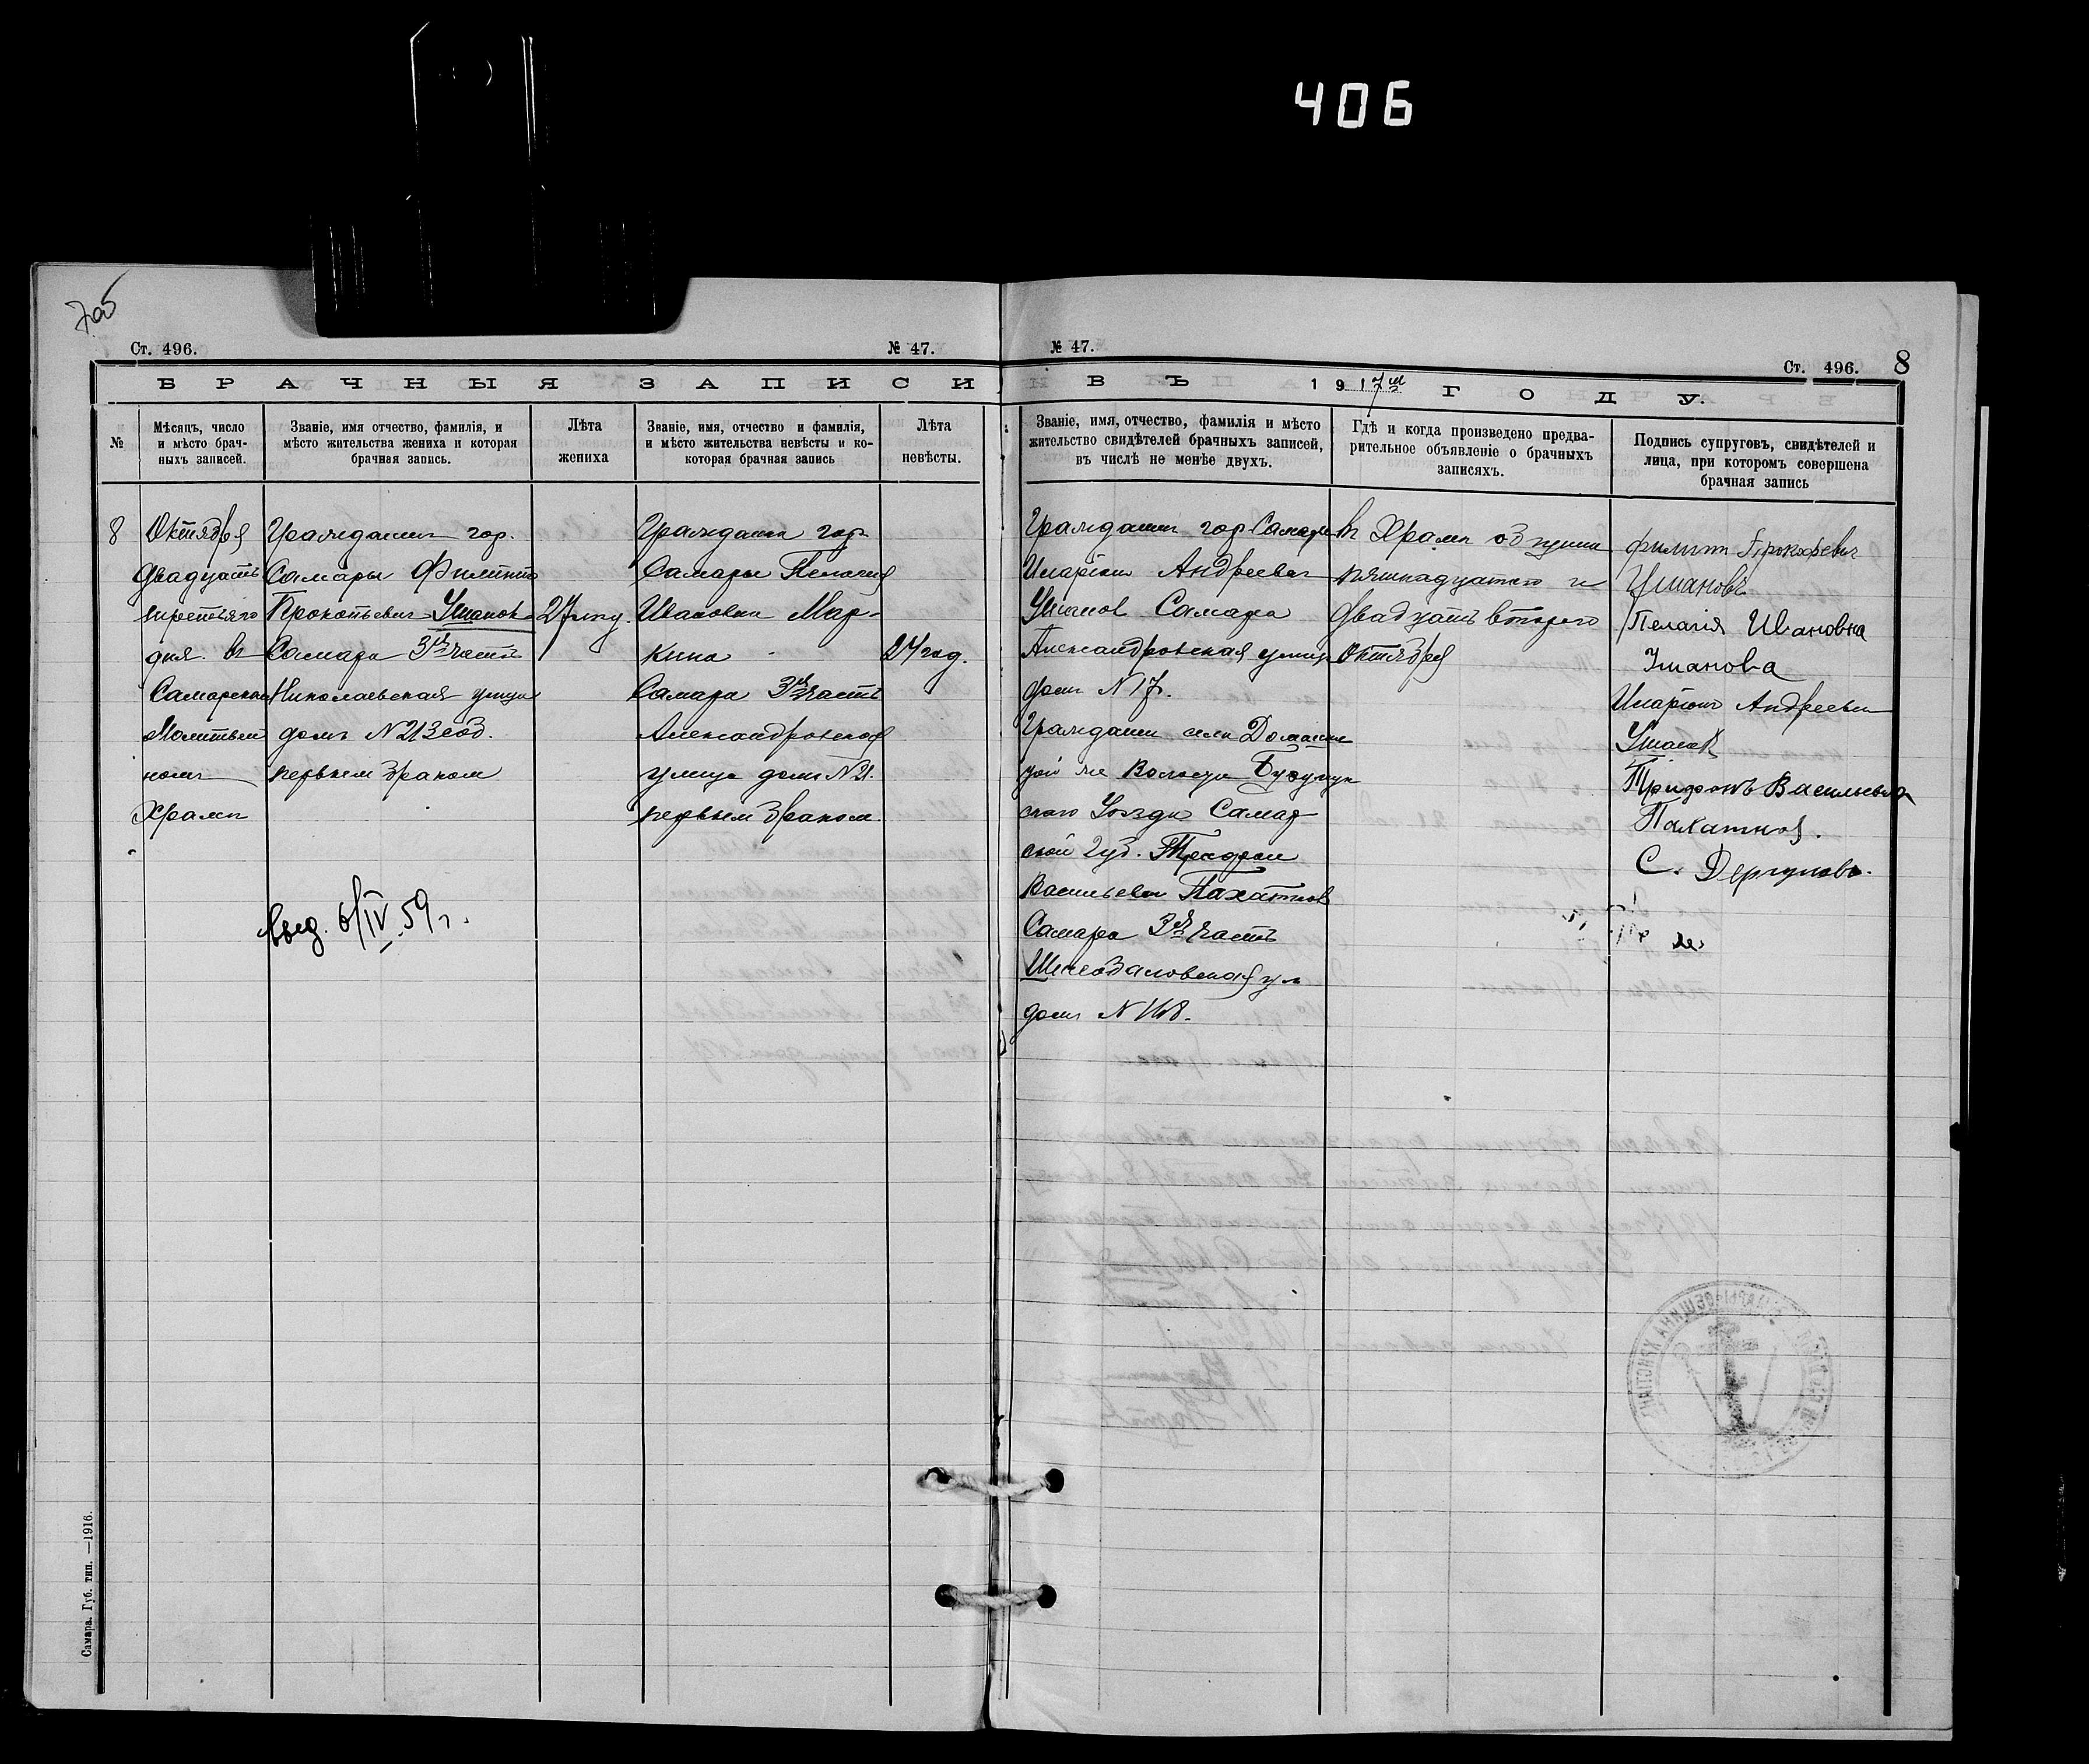 406
7об
Ст. 496.
№ 47.
№ 47.
Ст. 496.
8
БРАЧНЫЯ ЗАПИСИ
ВЪ 1917 ГОДУ.
№
Мѣсяцъ, число
и мѣсто брач-
ныхъ записей.
Званіе, имя отчество, фамилія, и
мѣсто жительства жениха и которая
брачная запись.
Лѣта
жениха
Званіе, имя, отчество и фамилія,
и мѣсто жительства невѣсты и ко-
которая брачная запись
Лѣта
невѣсты.
Званіе, имя, отчество, фамилія и мѣсто
жительство свидѣтелей брачныхъ записей,
въ числѣ не менѣе двухъ.
Гдѣ и когда произведено предва-
рительное объявленіе о брачныхъ
записяхъ.
Подпись супруговъ, свидѣтелей и
лица, при которомъ совершена
брачная запись
8
Октября
Двадцать
третьяго
дня. въ
Самарском
Молитвен
номъ
Храмѣ
Гражданин гор.
Самары Филиппъ
Прокопьевич Уманов
Самара 3я часть
Николаевская улица
домъ № 213
первым браком
27 лет
Гражданка гор
Самары Пелагея
Ивановна Мар-
кина
Самара 3я часть
Александровская
улица домъ № 21.
первым браком.
24 год.
Гражданин гор Самары
Иларион Андреевич
Уманов Самара
Александровская улица
домъ № 17.
Гражданин села
той же Волости Бузулук
скаго Уезда Самар
ской Губ.
Васильевич
Самара 3я часть
ул
домъ №
въ Храмѣ общины
пятнадцатого и
двадцать второго
Октября
Филипп Прокофьевич
Умановъ
Пелагія Ивановна
Уманова
Иларіонъ Андреевич
Уманов
Васильевич
С.
выд. 6/IV.59 г.
Самара. Губ. тип. —1916.